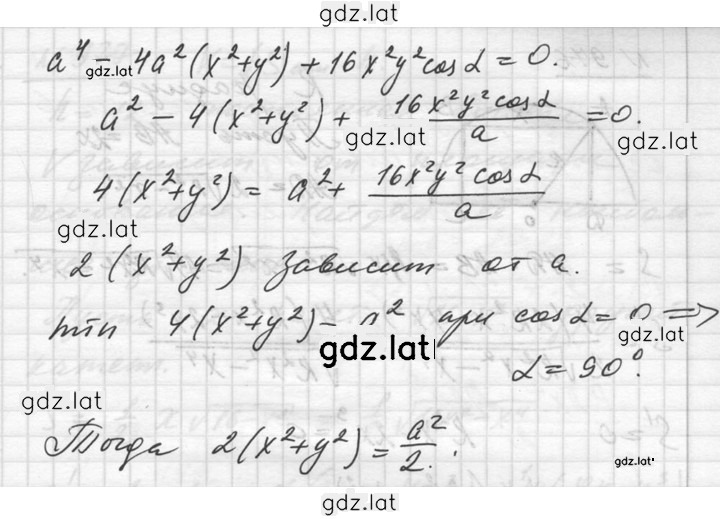 gdz.lat
a⁴ - 4a²(x²+y²) + 16x²y²cosα = 0.
gdz.lat
a² - 4(x²+y²) + 16x²y²cosα / a = 0.
gdz.lat gdz.lat
4(x²+y²) = a² + 16x²y²cosα / a
gdz.lat gdz.lat
2(x²+y²) зависит от a.
min 4(x²+y²) = a² при cosα = 0 ⇒
gdz.lat gdz.lat
α = 90°.
gdz.lat
Тогда 2(x²+y²) = a²/2.
gdz.lat
gdz.lat